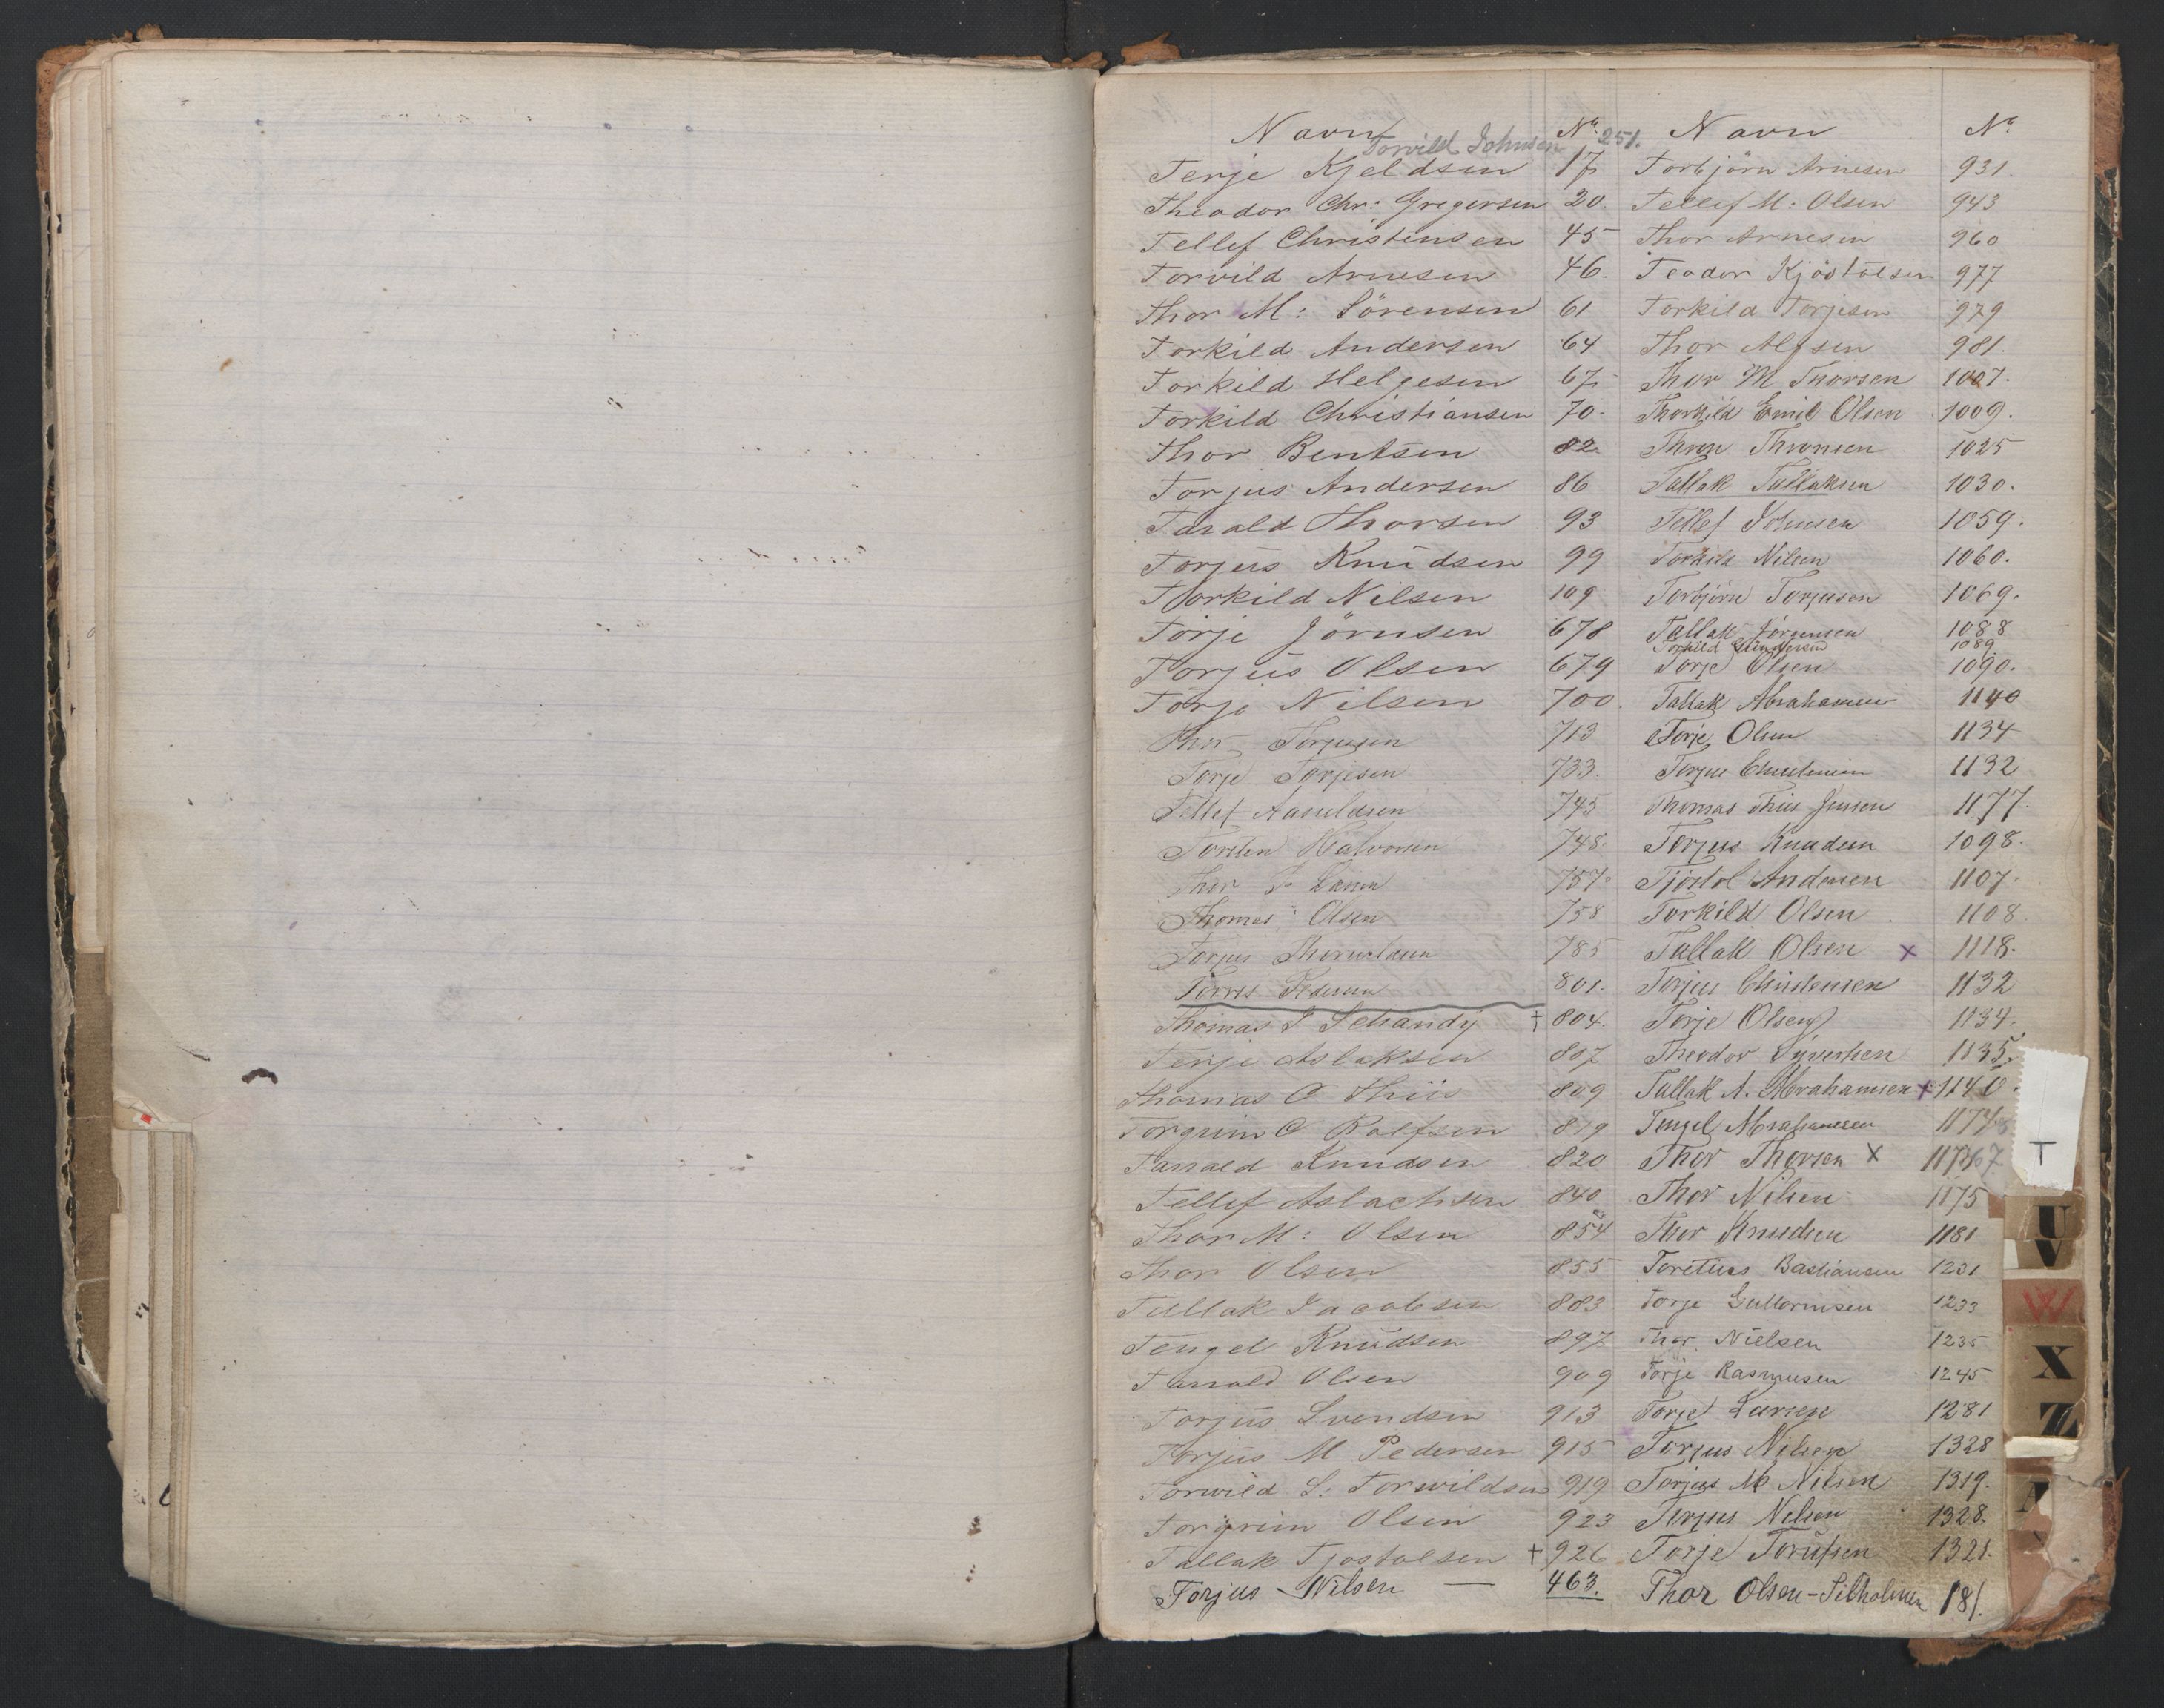 Navn Nº Navn Nº
Torvild Johnsen 251.
Terje Kjeldsen 17
Theodor Chr: Gregersen 20
Tellef Christensen 45
Torvild Arnesen 46.
Thor M: Sörensen 61
Torkild Andersen 64
Torkild Helgesen 67
Torkild Christiansen 70.
Thor Bentsen 82.
Torjus Andersen 86
Tarald Thorsen 93
Torjus Knudsen 99
Torkild Nilsen 109
Törje Jörnsen 678
Torjus Olsen 679
Törje Nilsen 700.
Thor Torjusen 713
Torje Torjesen 733.
Tellef Aasuldsen 745
Torsten Halvorsen 748.
Thor Larsen 757.
Thomas Olsen 758
Torjus 785
Torres Pedersen 801.
Thomas J Schandy † 804.
Terje Aslaksen 807
Thomas O Thiis 809
Torgrim O Rolfsen 819
Tarald Knudsen 820
Tellef Aslachsen 840
Thor M: Olsen 854
Thor Olsen 855
Tallak Jacobsen 883
Tengel Knudsen 897
Tarald Olsen 909
Torjus Svendsen 913
Torjus M Pedersen 915
Torwild S: Torwildsen 919
Torgrim Olsen 923
Tallak Tjostolsen † 926
Torjus Nilsen — 463.
Torbjörn Arnesen 931.
Tellef M: Olsen 943
Thor Arnesen 960
Teodor Kjöstolsen 977
Torkild Torjesen 979
Thor Alfsen 981.
Thor M Thorsen 1007.
Thorkild Emil Olsen 1009.
Thron Thronsen 1025
Tallak Tallaksen 1030.
Tellef Johnsen 1059.
Torkild Nilsen 1060.
Torbjörn Torjusen 1069.
Tallak Jörgensen 1088
Torkild Gundersen 1089
Torje Olsen 1090.
Tallak Abrahamsen 1140
Torje Olsen 1134
Torjus Christensen 1132
Thomas Thiis Jensen 1177.
Torjus Knudsen 1098.
Tjöstol Andersen 1107.
Torkild Olsen 1108.
Tallak Olsen x 1118.
Torjus Christensen 1132
Torje Olsen 1134.
Theodor Syvertsen 1135.
Tallak A. Abrahamsen x 1140.
Tengel Abrahamsen
Thor Thorsen x
Thor Nilsen 1175
Thor Knudsen 1181
Toretius Bastiansen 1231
Torje Guttormsen 1233
Thor Nielsen 1235
Torje Rasmusen 1245
Torje Larsen 1281
Torjus Nilsen 1328
Torjus M Nilsen 1319.
Torjus Nilsen 1328.
Torje 1321.
Thor Olsen-Silholmen 181.
T
U
V
W
X
Z